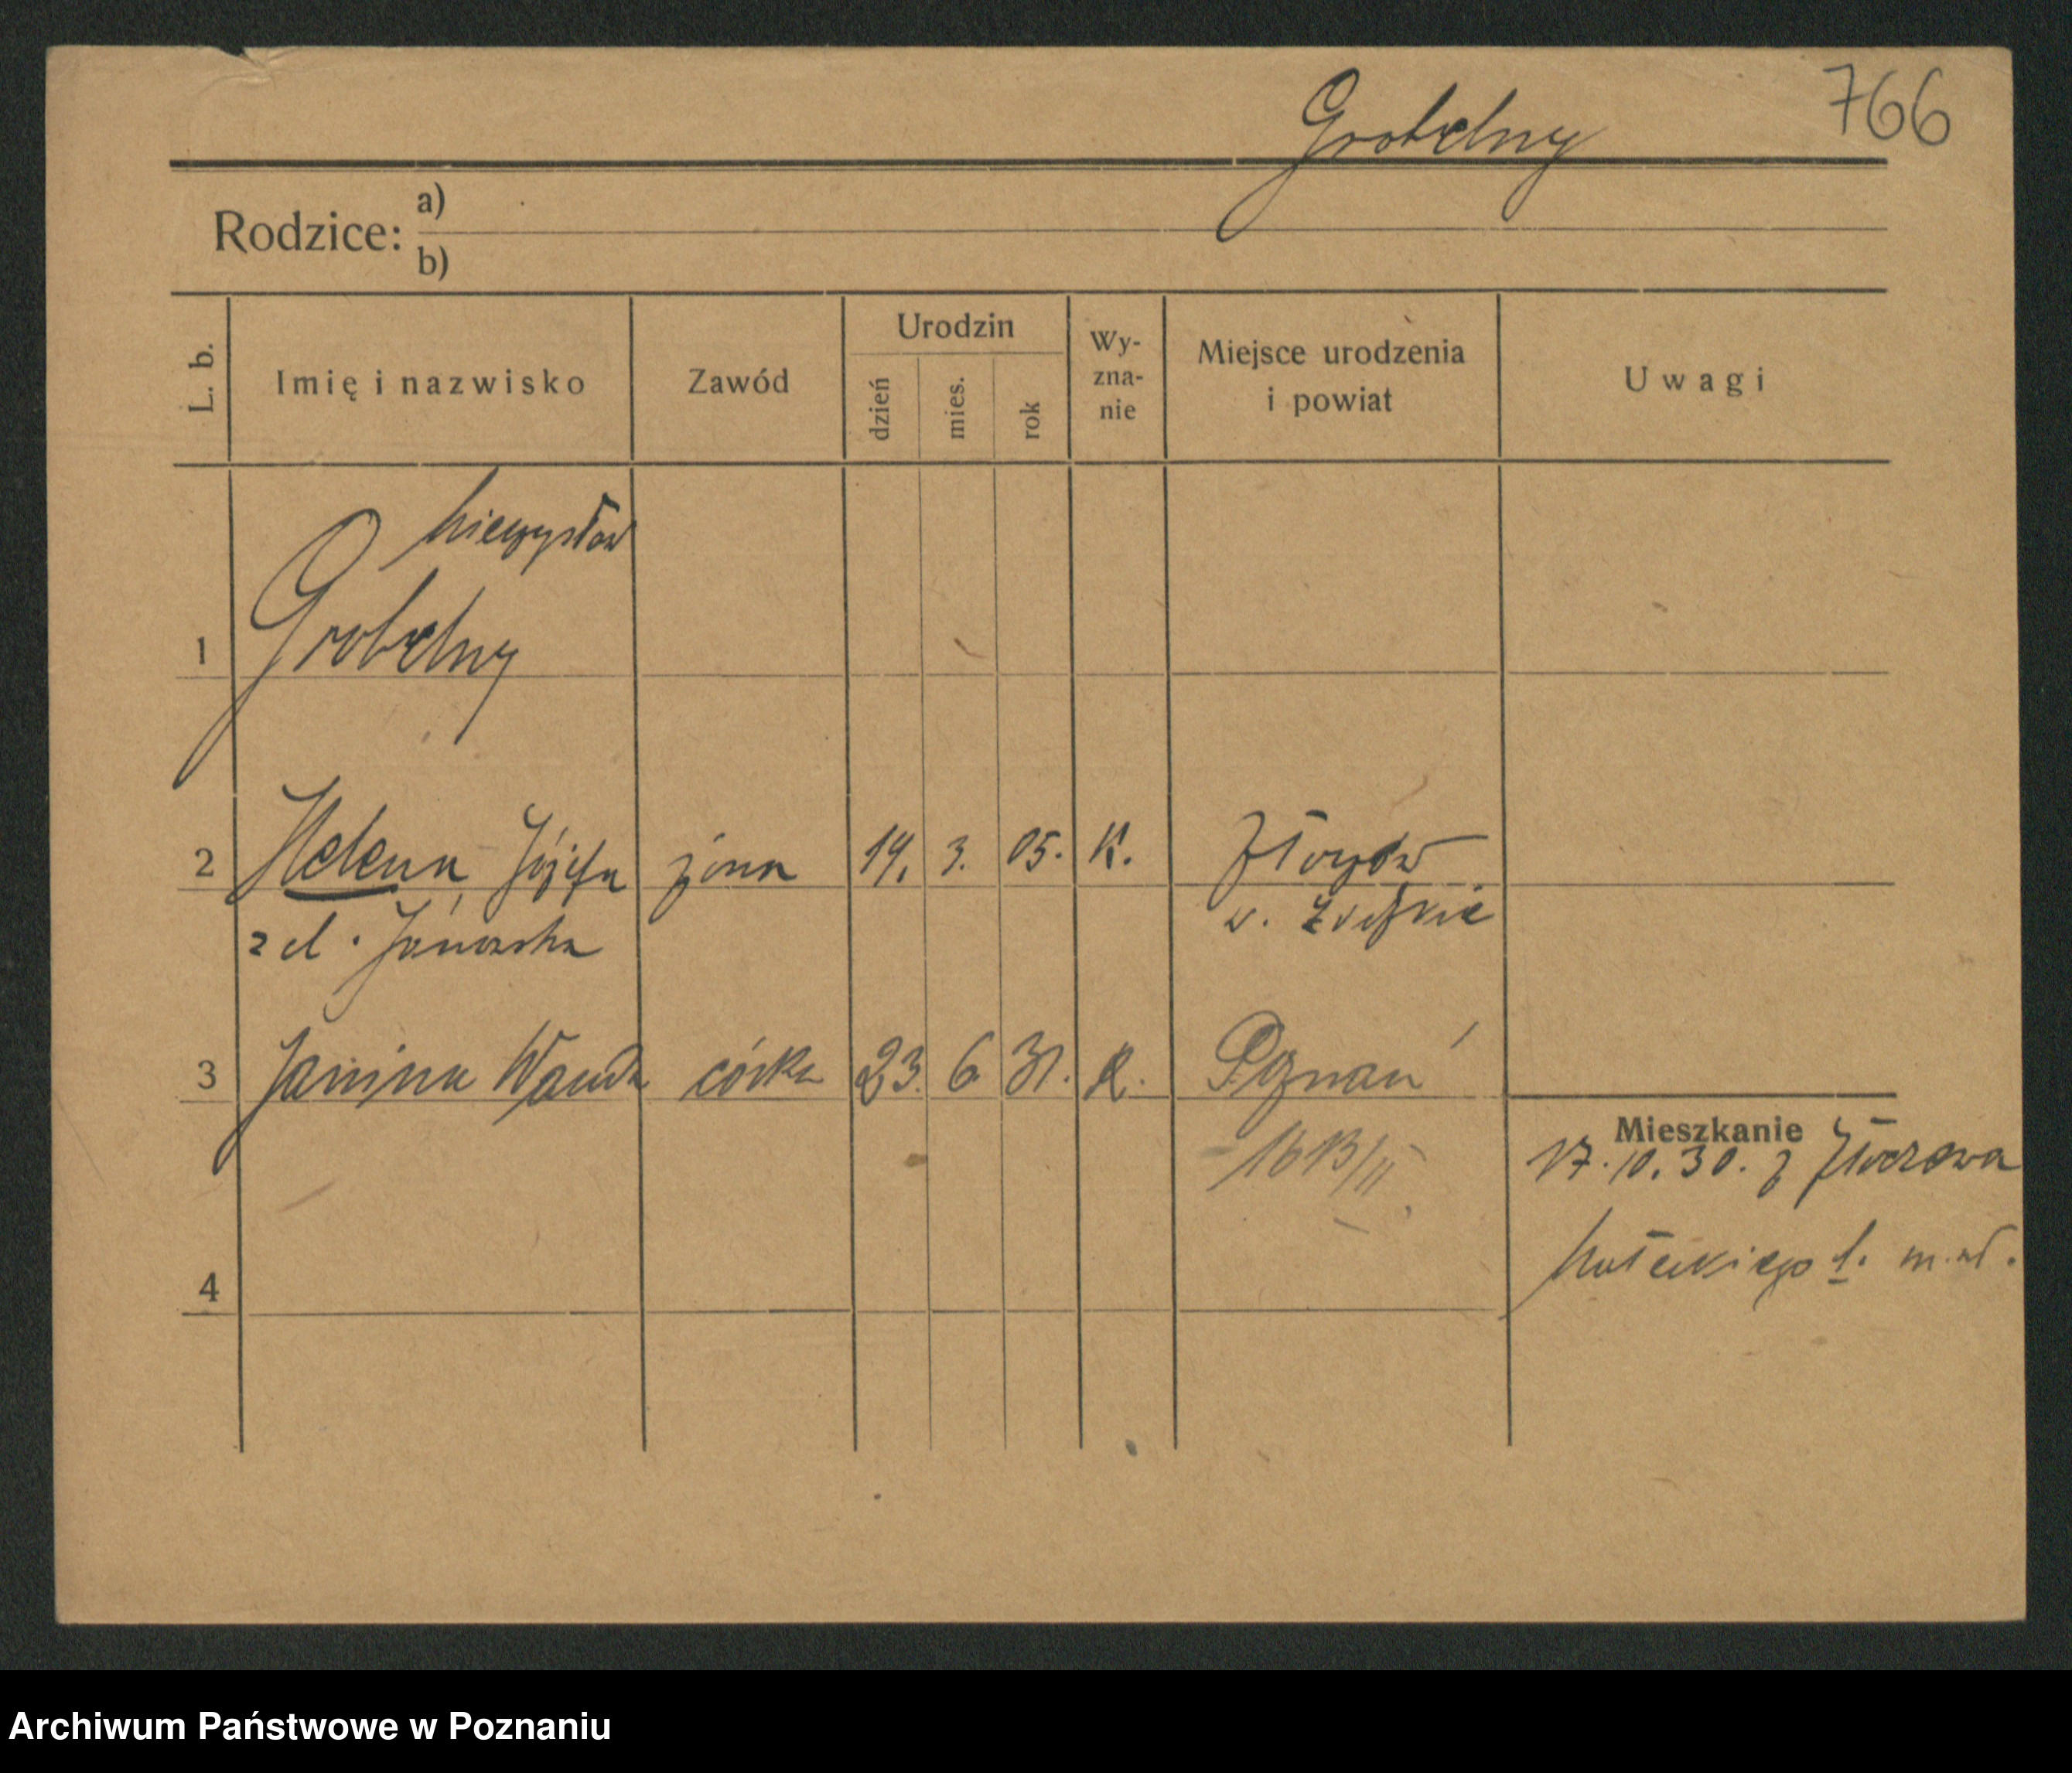 766
Grobelny
Rodzice: a)
b)
L. b. Imię i nazwisko Zawód Urodzin dzień mies. rok Wy-zna-nie Miejsce urodzenia i powiat Uwagi
Mieczysław
1 Grobelny
2 Helena Józefa żona 19. 3. 05. K. Złoczów
w.
z d.
3 Janina Wanda córka 23. 6 31. K. Poznań
Mieszkanie
17. 10. 30. z Złoczowa
1613/II
Małeckiego 1. m.
4
Archiwum Państwowe w Poznaniu